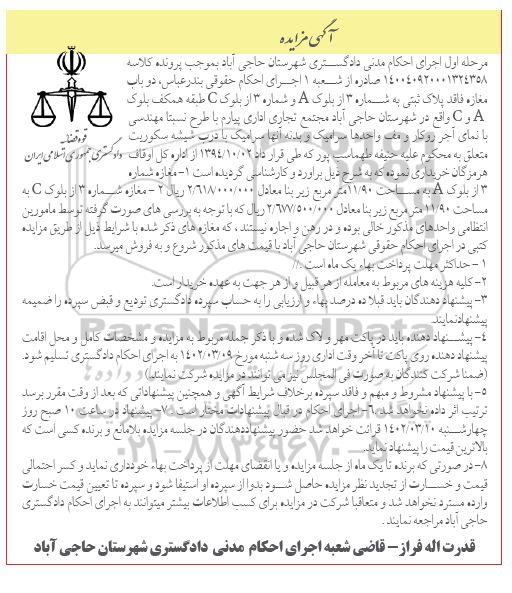 آگهی مزایده
مرحله اول اجرای احکام مدنی دادگستری شهرستان حاجی آباد بموجب پرونده کلاسه
۱۴۰۰۴۰۹۲۰۰۰۱۳۲۴۳۵۸ صادره از شعبه ۱ اجرای احکام حقوقی بندرعباس، دو باب
مغازه فاقد پلاک ثبتی به شماره ۳ از بلوک A و شماره ۳ از بلوک C طبقه همکف بلوک
A و C واقع در شهرستان حاجی آباد مجتمع تجاری اداری پیارم با طرح نسبتا مهندسی
با نمای آجر روکار و کف واحدها سرامیک و بدنه آنها سرامیک با درب شیشه سکوریت
متعلق به محکوم علیه حنیفه طهماسب پور که طی قرار داد ۱۳۹۴/۱۰/۰۲ از اداره کل اوقاف
هرمزگان خریداری نموده که به شرح ذیل برآورد و کارشناسی گردیده است ۱- مغازه شماره
۳ از بلوک A به مساحت ۱۱/۹۰ متر مربع زیر بنا معادل ۲/۶۱۸/۰۰۰/۰۰۰ ریال ۲ - مغازه شماره ۳ از بلوک C به
مساحت ۱۱/۹۰ متر مربع زیر بنا معادل ۲/۶۷۷/۵۰۰/۰۰۰ ریال که با توجه به بررسی های صورت گرفته توسط مامورین
انتظامی واحدهای مذکور خالی بوده و در رهن و اجاره نیستند، که مغازه های ذکر شده با شرایط ذیل از طریق مزایده
کتبی در اجرای احکام حقوقی شهرستان حاجی آباد با قیمت های مذکور شروع و به فروش میرسد.
۱ - حداکثر مهلت پرداخت بهاء یک ماه است.//
۲- کلیه هزینه های مربوط به معامله از هر قبیل و از هر جهت به عهده خریدار است.
۳- پیشنهاد دهندگان باید قبلا ده درصد بهاء و ارزیابی را به حساب سپرده دادگستری تودیع و قبض سپرده را ضمیمه
پیشنهاد نمایند.
۴- پیشنهاد دهنده باید در پاکت مهر و لاک شده و با ذکر جمله مربوط به مزایده و مشخصات کامل و محل اقامت
پیشنهاد دهنده روی پاکت تا آخر وقت اداری روز سه شنبه مورخ ۱۴۰۲/۰۳/۰۹ به اجرای احکام دادگستری تسلیم شود.
(ضمنا شرکت کنندگان به صورت فی المجلس نیز می توانند در مزایده شرکت نمایند)
۵- با پیشنهاد مشروط و مبهم و فاقد سپرده برخلاف شرایط آگهی و همچنین پیشنهاداتی که بعد از وقت مقرر برسد
ترتیب اثر داده نخواهد شد. ۶- اجرای احکام در قبال پیشنهادات مختار است. ۷- پیشنهاد در ساعت ۱۰ صبح روز
چهارشنبه ۱۴۰۲/۰۳/۱۰ قرائت خواهد شد حضور پیشنهاد دهندگان در جلسه مزایده بلامانع و برنده کسی است که
بالاترین قیمت را پیشنهاد نماید.
۸- در صورتی که برنده تا یک ماه از جلسه مزایده و یا انقضای مهلت از پرداخت بهاء خودداری نماید و کسر احتمالی
قیمت و خسارت از تجدید نظر مزایده حاصل شود بدوا از سپرده او استیفا شود و سپرده تا تعیین قیمت خسارت
وارده مسترد نخواهد شد و متعاقبا شرکت در مزایده برای کسب اطلاعات بیشتر میتوانند به اجرای احکام دادگستری
حاجی آباد مراجعه نمایند.
قدرت اله فراز – قاضی شعبه اجرای احکام مدنی دادگستری شهرستان حاجی آباد
قوه قضائیه
دادگستری جمهوری اسلامی ایران
ParsNamadData
۰۲۱-۸۸۳۴۹۶۷۰